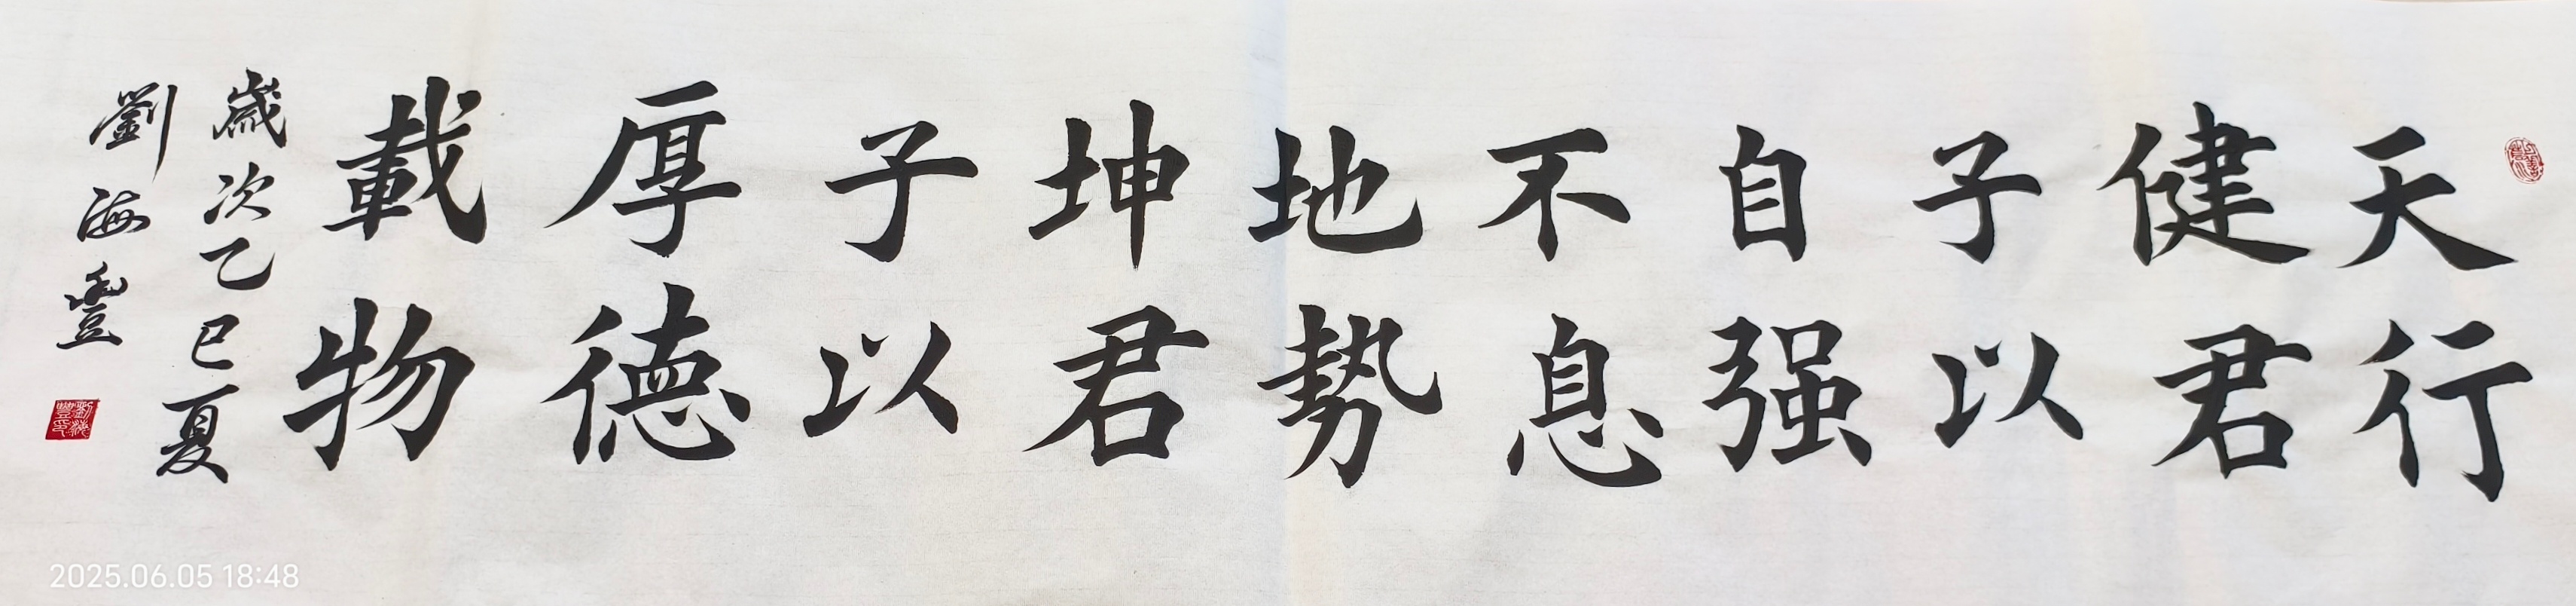 天行
健君
子以
自强
不息
地势
坤君
子以
厚德
載物
歲次乙巳夏
劉海豐
劉海豐印
2025.06.05 18:48